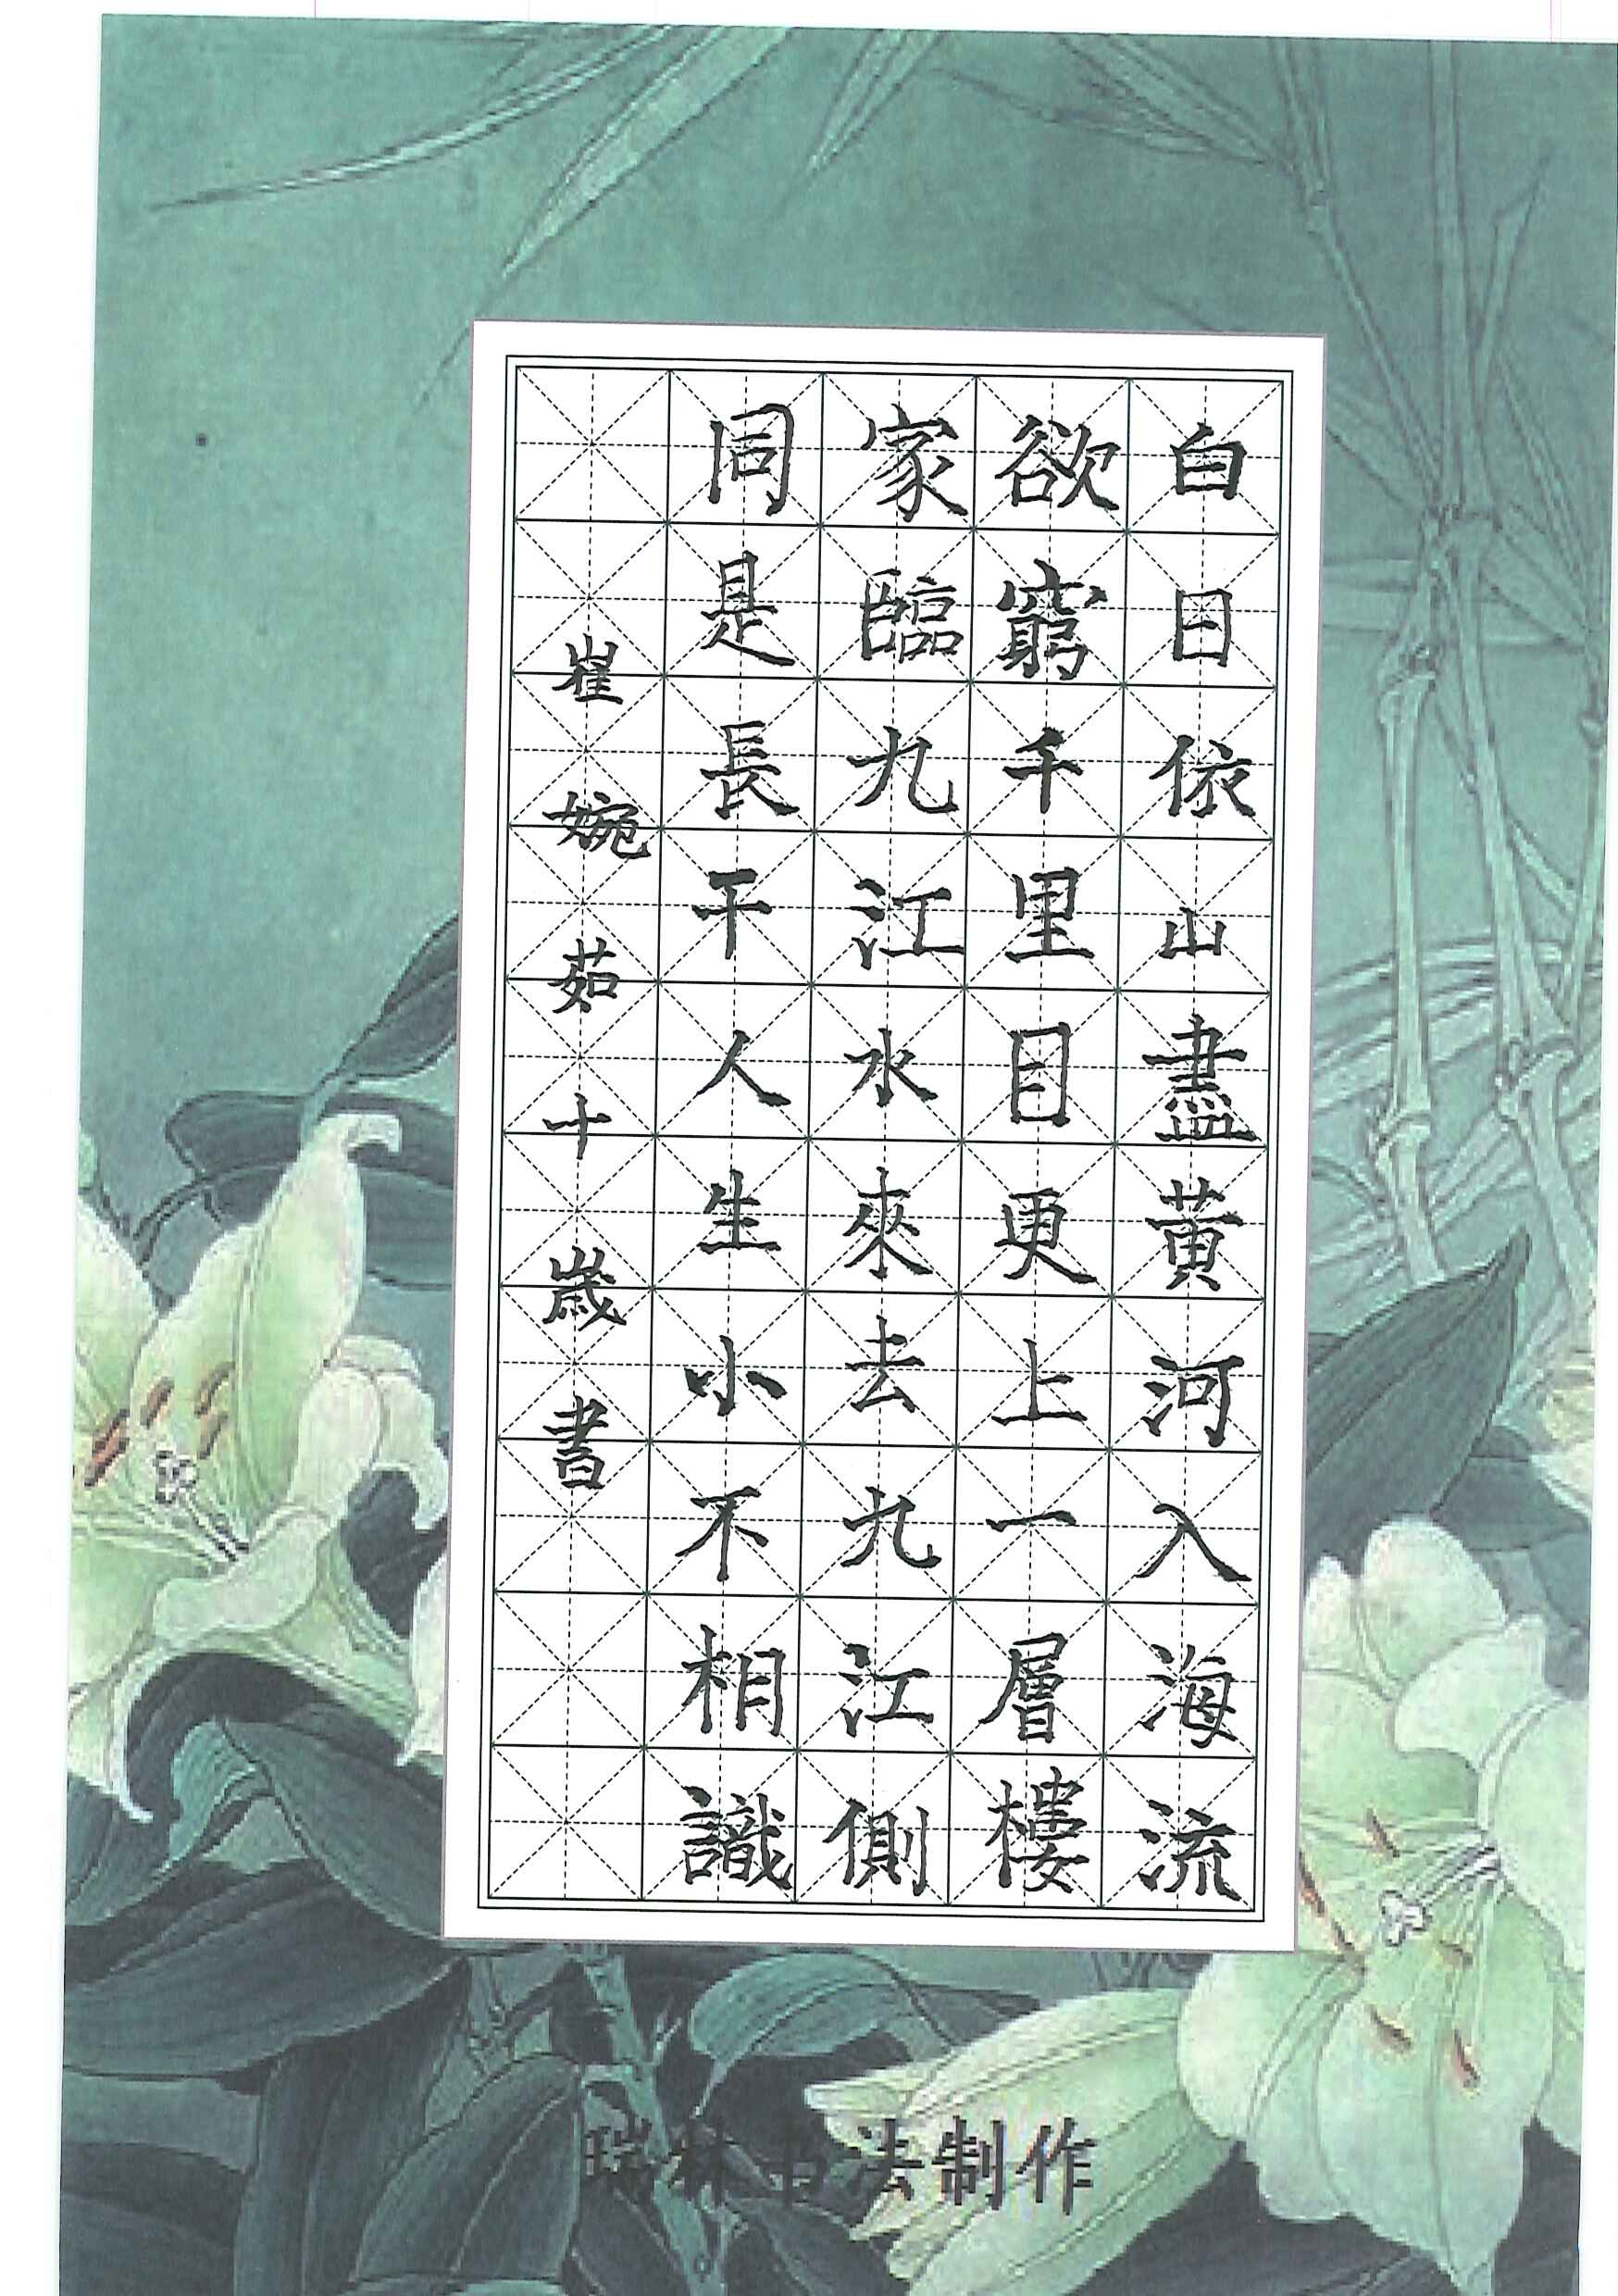 白日依山盡黃河入海流
欲窮千里目更上一層樓
家臨九江水來去九江側
同是長干人生小不相識
崔婉茹十歲書
瑞林书法制作